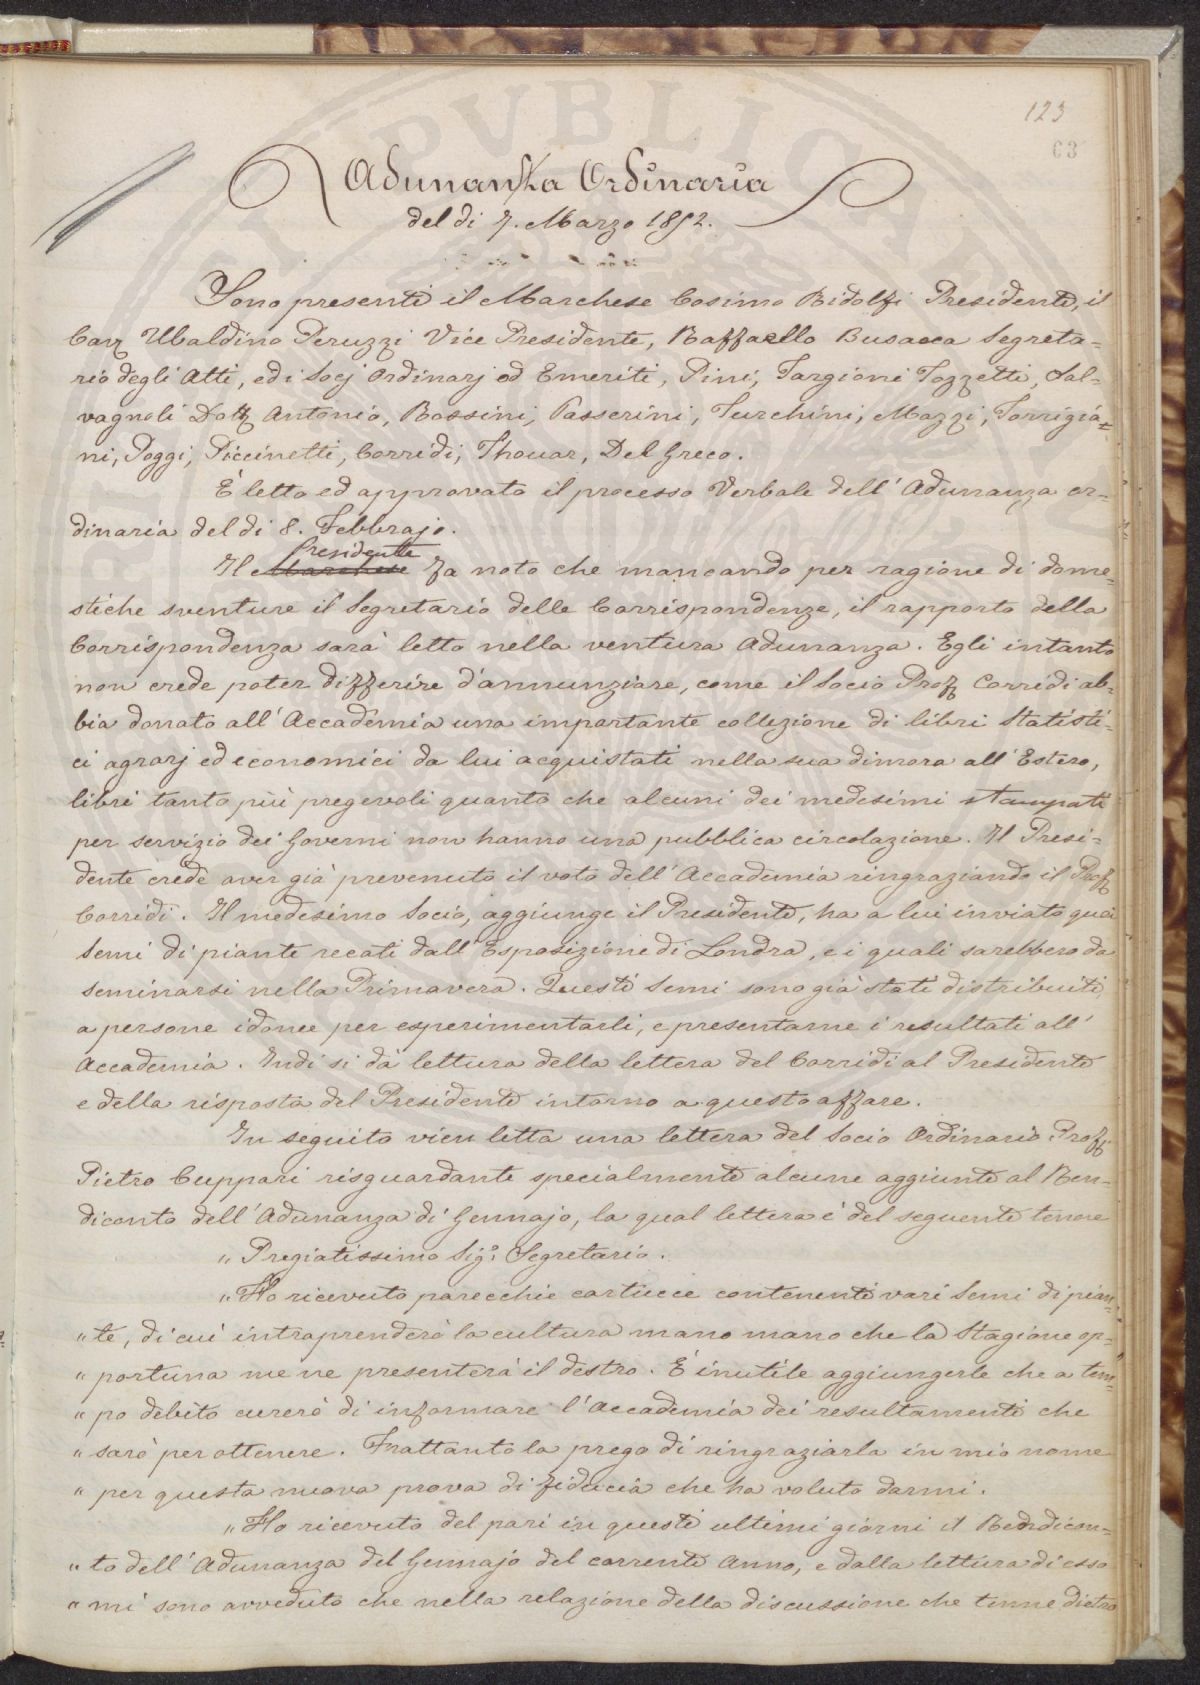 123
63
Adunanza Ordinaria
del dì 7. Marzo 1852.
Sono presenti il Marchese Cosimo Ridolfi Presidente, il
Cav Ubaldino Peruzzi Vice Presidente, Raffaello Busacca Segreta-
rio degli Atti, ed i Socj Ordinarj ed Emeriti, Pini, Targioni Tozzetti, Sal-
vagnoli Dott Antonio, Rossini, Passerini, Turchini, Mazzi, Torrigia-
ni, Poggi, Piccinetti, Corridi, Thouar, Del Greco.
È letto ed approvato il processo Verbale dell' Adunanza or-
dinaria del dì 8. Febbrajo.
Presidente
Il Marchese fa noto che mancando per ragione di dome-
stiche sventure il Segretario delle Corrispondenze, il rapporto della
Corrispondenza sarà letto nella ventura Adunanza. Egli intanto
non crede poter differire d'annunziare, come il Socio Prof Corridi ab-
bia donato all' Accademia una importante collezione di libri Statisti-
ci agrarj ed economici da lui acquistati nella sua dimora all' Estero,
libri tanto più pregevoli quanto che alcuni dei medesimi stampati
per servizio dei Governi non hanno una pubblica circolazione. Il Presi-
dente crede aver già prevenuto il voto dell' Accademia ringraziando il Prof
Corridi. Il medesimo Socio, aggiunge il Presidente, ha a lui inviato quei
semi di piante recati dall' Esposizione di Londra, e i quali sarebbero da
seminarsi nella Primavera. Questi semi sono già stati distribuiti
a persone idonee per esperimentarli, e presentarne i resultati all'
Accademia. Indi si dà lettura della lettera del Corridi al Presidente
e della risposta del Presidente intorno a questo affare.
In seguito vien letta una lettera del Socio Ordinario Prof
Pietro Cuppari risguardante specialmente alcune aggiunte al Ren-
diconto dell' Adunanza di Gennajo, la qual lettera è del seguente tenore
„ Pregiatissimo Sigr. Segretario.
„ Ho ricevuto parecchie cartucce contenenti vari Semi di pian-
„ te, di cui intraprenderò la cultura mano mano che la Stagione op-
„ portuna me ne presenterà il destro. È inutile aggiungerle che a tem-
„ po debito curerò di informare l' Accademia dei resultamenti che
„ sarò per ottenere. Frattanto la prego di ringraziarla in mio nome
„ per questa nuova prova di fiducia che ha voluto darmi.
„ Ho ricevuto del pari in questi ultimi giorni il Rendicon-
„ to dell' Adunanza del Gennajo del corrente Anno, e dalla lettura di esso
„ mi sono avveduto che nella relazione della discussione che tenne dietro